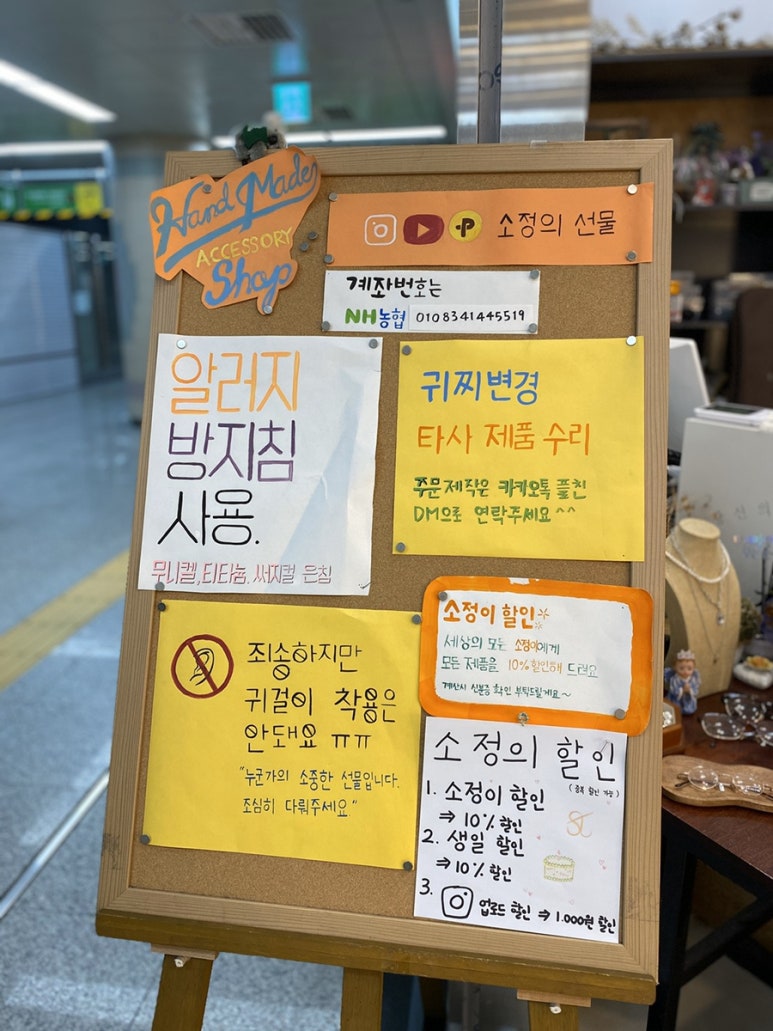 Hand Made
ACCESSORY
Shop
소정의 선물
계좌번호는
NH농협 0108341445519
알러지
방지침
사용.
무니켈, 티타늄, 써지컬 은침
귀찌변경
타사 제품 수리
주문제작은 카카오톡 플친
DM으로 연락주세요^^
죄송하지만
귀걸이 착용은
안돼요 ㅠㅠ
"누군가의 소중한 선물입니다.
조심히 다뤄주세요"
소정이 할인
세상의 모든 소정이에게
모든 제품을 10% 할인해 드려요
계산시 신분증 확인 부탁드릴게요~
소정의 할인
(중복 할인 가능)
1. 소정이 할인
⇒ 10% 할인
2. 생일 할인
⇒ 10% 할인
3. 업로드 할인 ⇒ 1.000원 할인